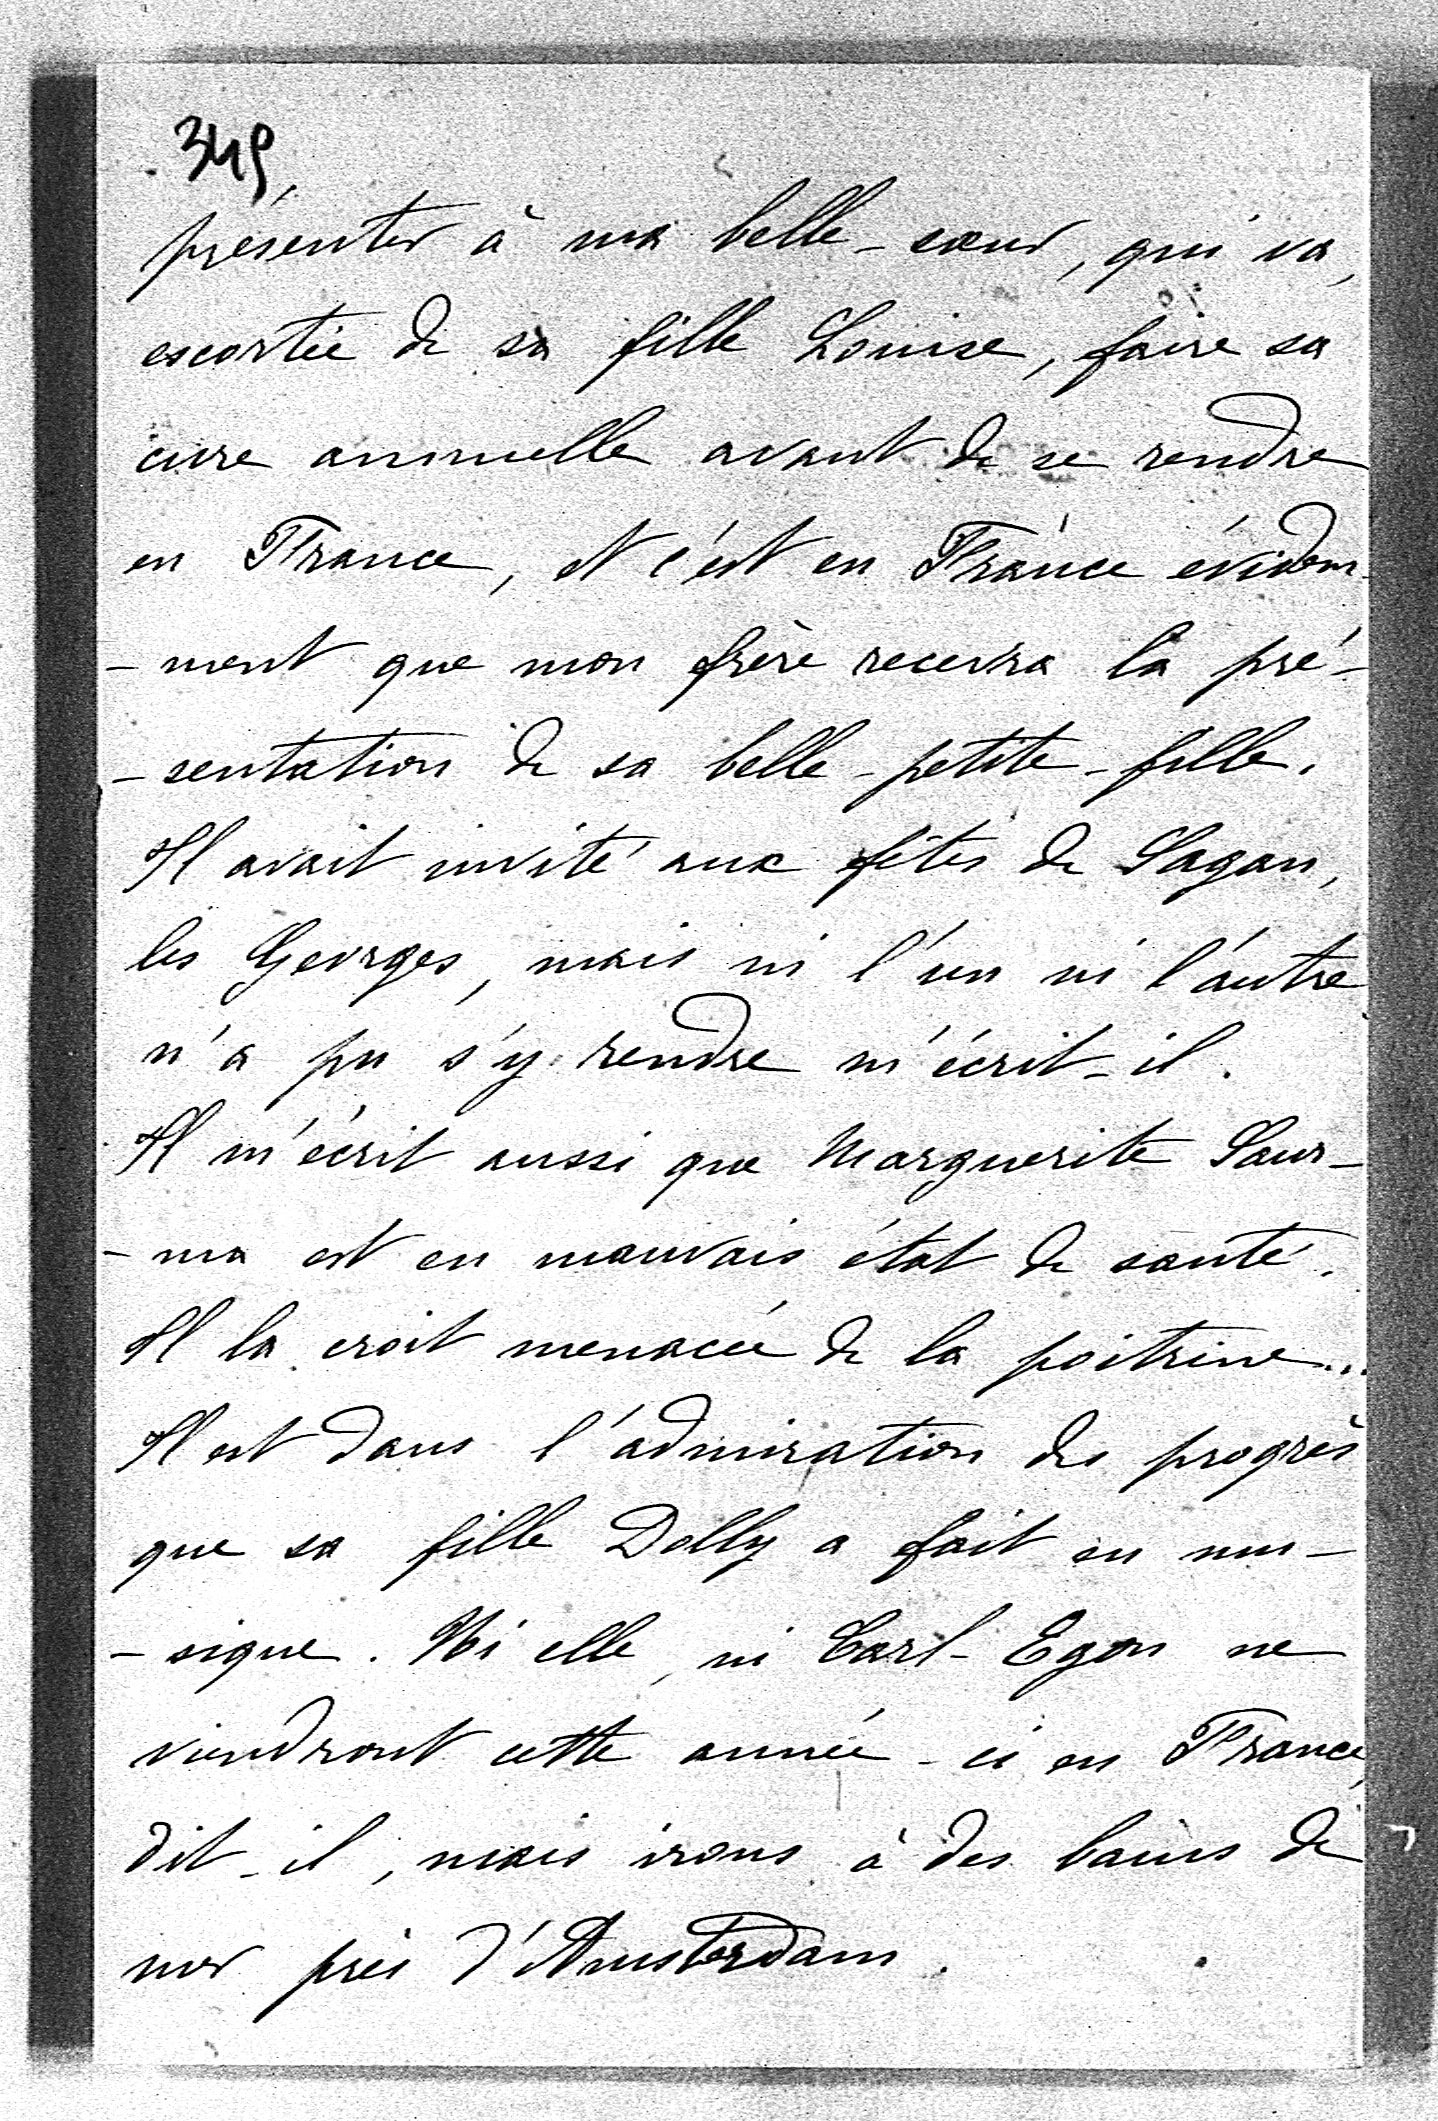 349
présenter à ma belle-sœur, qui va,
escortée de sa fille Louise, faire sa
cure annuelle avant de se rendre
en France, et c'est en France évidem-
-ment que mon frère recevra la pré-
-sentation de sa belle-petite-fille.
Il avait invité aux fêtes de Sagan,
les Georges, mais ni l'un ni l'autre
n'a pu s'y rendre m'écrit-il.
Il m'écrit aussi que Marguerite Saur-
-ma est en mauvais état de santé.
Il la croit menacée de la poitrine...
Il est dans l'admiration des progrès
que sa fille Dolly a fait en mu-
-sique. Ni elle, ni Carl-Egon ne
viendront cette année-ci en France,
dit-il, mais irons à des bains de
mer près d'Amsterdam.